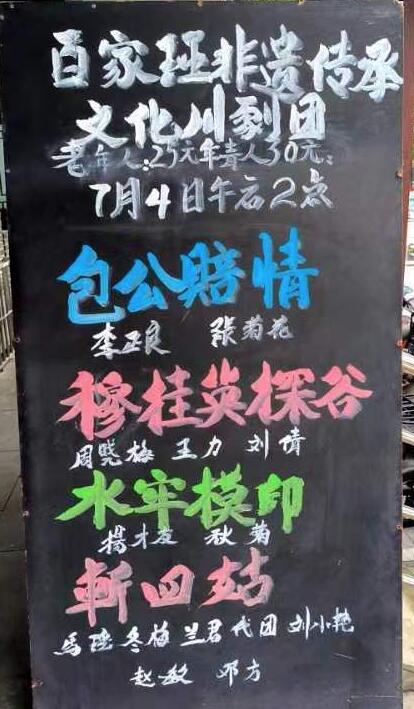 百家班非遗传承
文化川剧团
老年人:25元年青人30元:
7月4日午后2点
包公赔情
李正良 张菊花
穆桂英探谷
周晓梅 王力 刘倩
水牢摸印
楊才友 秋菊
斬四姑
馬瑶 冬梅 兰君 代团 刘小艳
赵敏 邓方